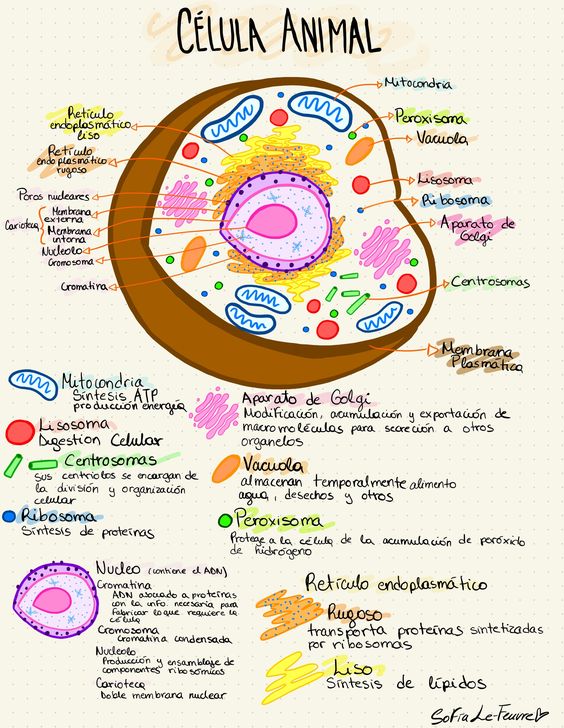 CÉLULA ANIMAL
Retículo
endoplasmático
liso
Retículo
endoplasmático
rugoso
Poros nucleares
Carioteca
Membrana
externa
Membrana
interna
Nucleolo
Cromosoma
Cromatina
Mitocondria
Peroxisoma
Vacuola
Lisosoma
Ribosoma
Aparato de
Golgi
Centrosomas
Membrana
Plasmática
Mitocondria
Síntesis ATP
producción energía
Lisosoma
Digestion Celular
Centrosomas
sus centriolos se encargan de
la división y organización
celular
Ribosoma
Síntesis de proteínas
Aparato de Golgi
Modificación, acumulación y exportación de
macromoléculas para secreción a otros
organelos
Vacuola
almacenan temporalmente alimento
agua, desechos y otros
Peroxisoma
Protege a la célula de la acumulación de peróxido
de hidrógeno
Nucleo (contiene el ADN)
Cromatina
ADN asociado a proteínas
con la info. necesaria para
fabricar lo que requiere la
célula
Cromosoma
Cromatina condensada
Nucleolo
Producción y ensamblaje de
componentes ribosómicos
Carioteca
Doble membrana nuclear
Retículo endoplasmático
Rugoso
transporta proteínas sintetizadas
por ribosomas
Liso
Síntesis de lípidos
Sofía Le-Feuvre